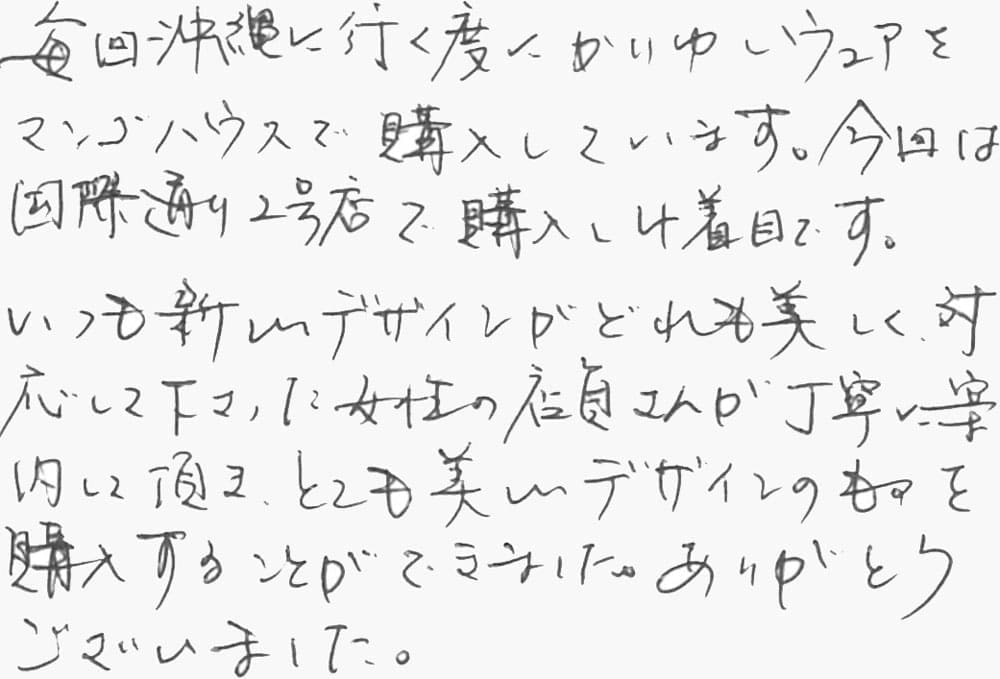 毎回沖縄に行く度にかりゆしウェアを
マンゴハウスで購入しています。今回は
国際通り2号店で購入し4着目です。
いつも新しいデザインがどれも美しく、対
応して下さった女性の店員さんが丁寧に案
内して頂き、とても美しいデザインのものを
購入することができました。ありがとう
ございました。